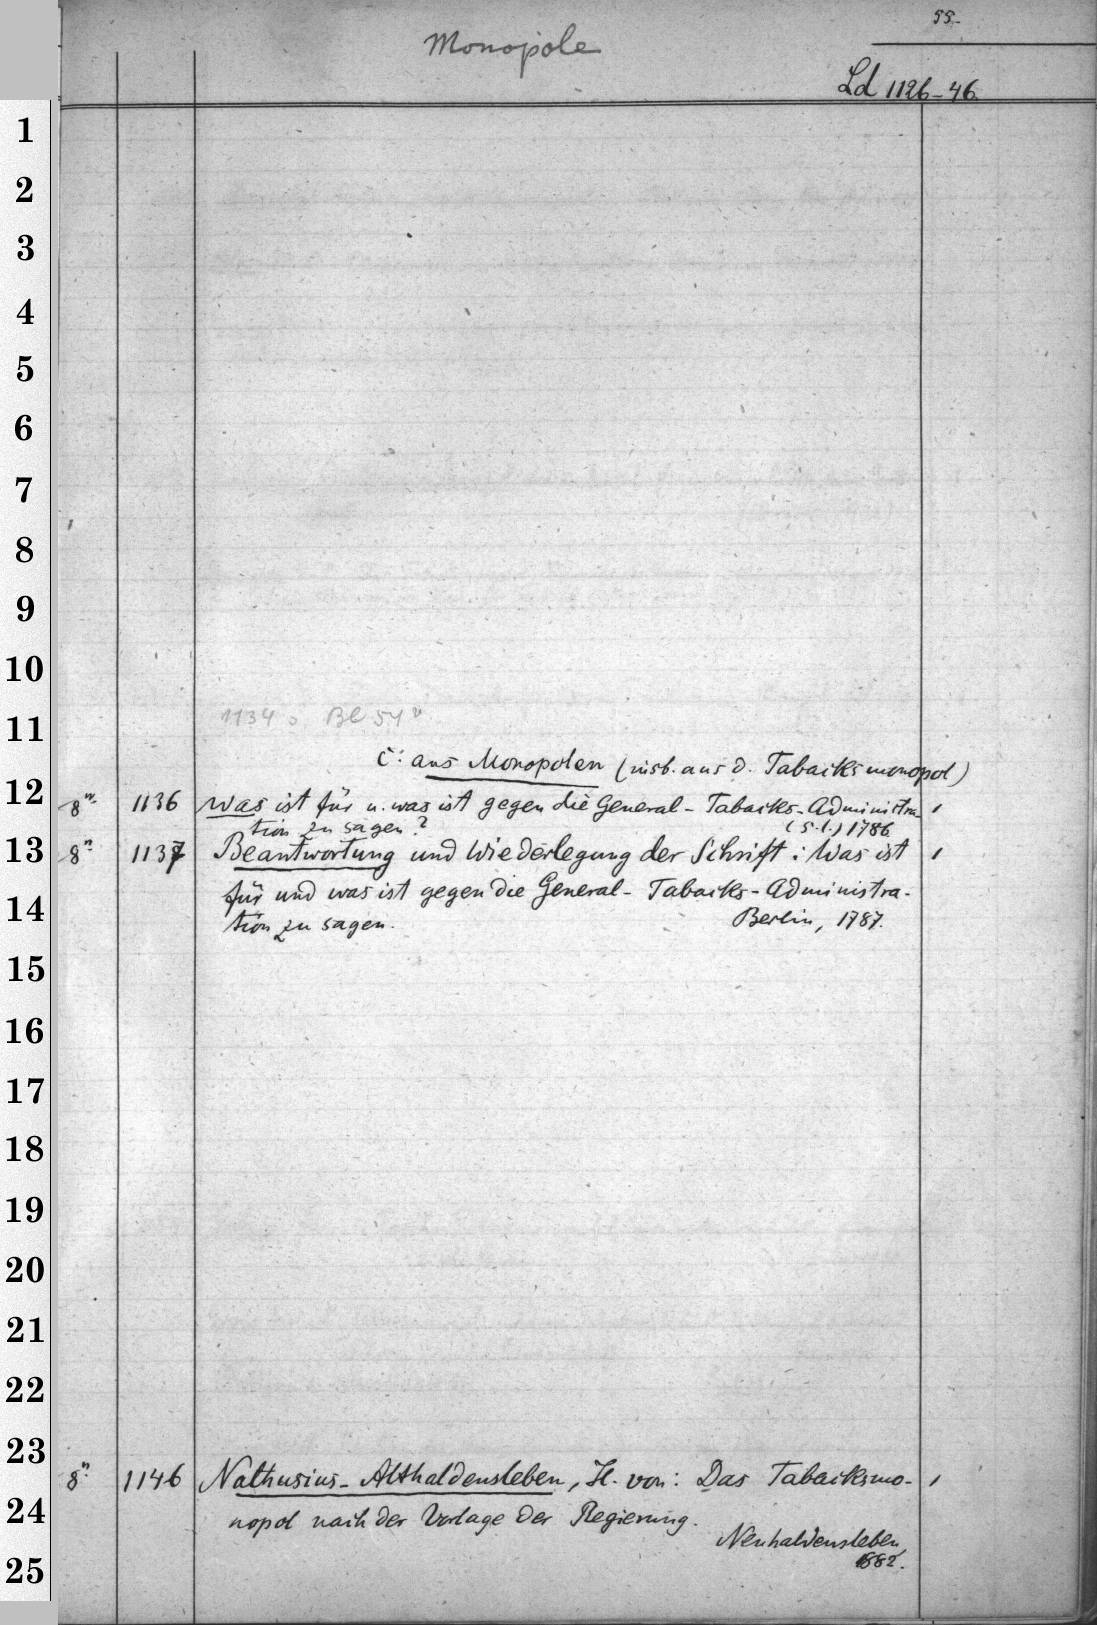 55.
Monopole
Ld 1126-46.
1
2
3
4
5
6
7
8
9
10
11
1134 s Bl 54v
c: aus Monopolen (insb. aus d. Tabacksmonopol)
12
8° 1136 Was ist für u. was ist gegen die General-Tabacks-Administra-
tion zu sagen? (s.l.) 1786
13
8° 1137 Beantwortung und Wiederlegung der Schrift: Was ist
für und was ist gegen die General-Tabacks-Administra-
14
tion zu sagen. Berlin, 1787.
15
16
17
18
19
20
21
22
23
8° 1146 Nathusius-Althaldensleben, H. von: Das Tabacksmo-
24
nopol nach der Vorlage der Regierung.
Neuhaldensleben,
1882.
25